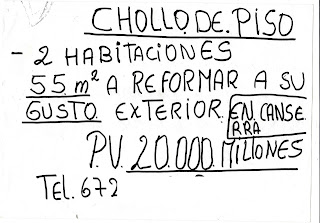 CHOLLO.DE.PISO
- 2 HABITACIONES
55 m² A REFORMAR A SU
GUSTO EXTERIOR EN CANSE
RRA
P.V. 20.000 MILLONES
TEL. 672